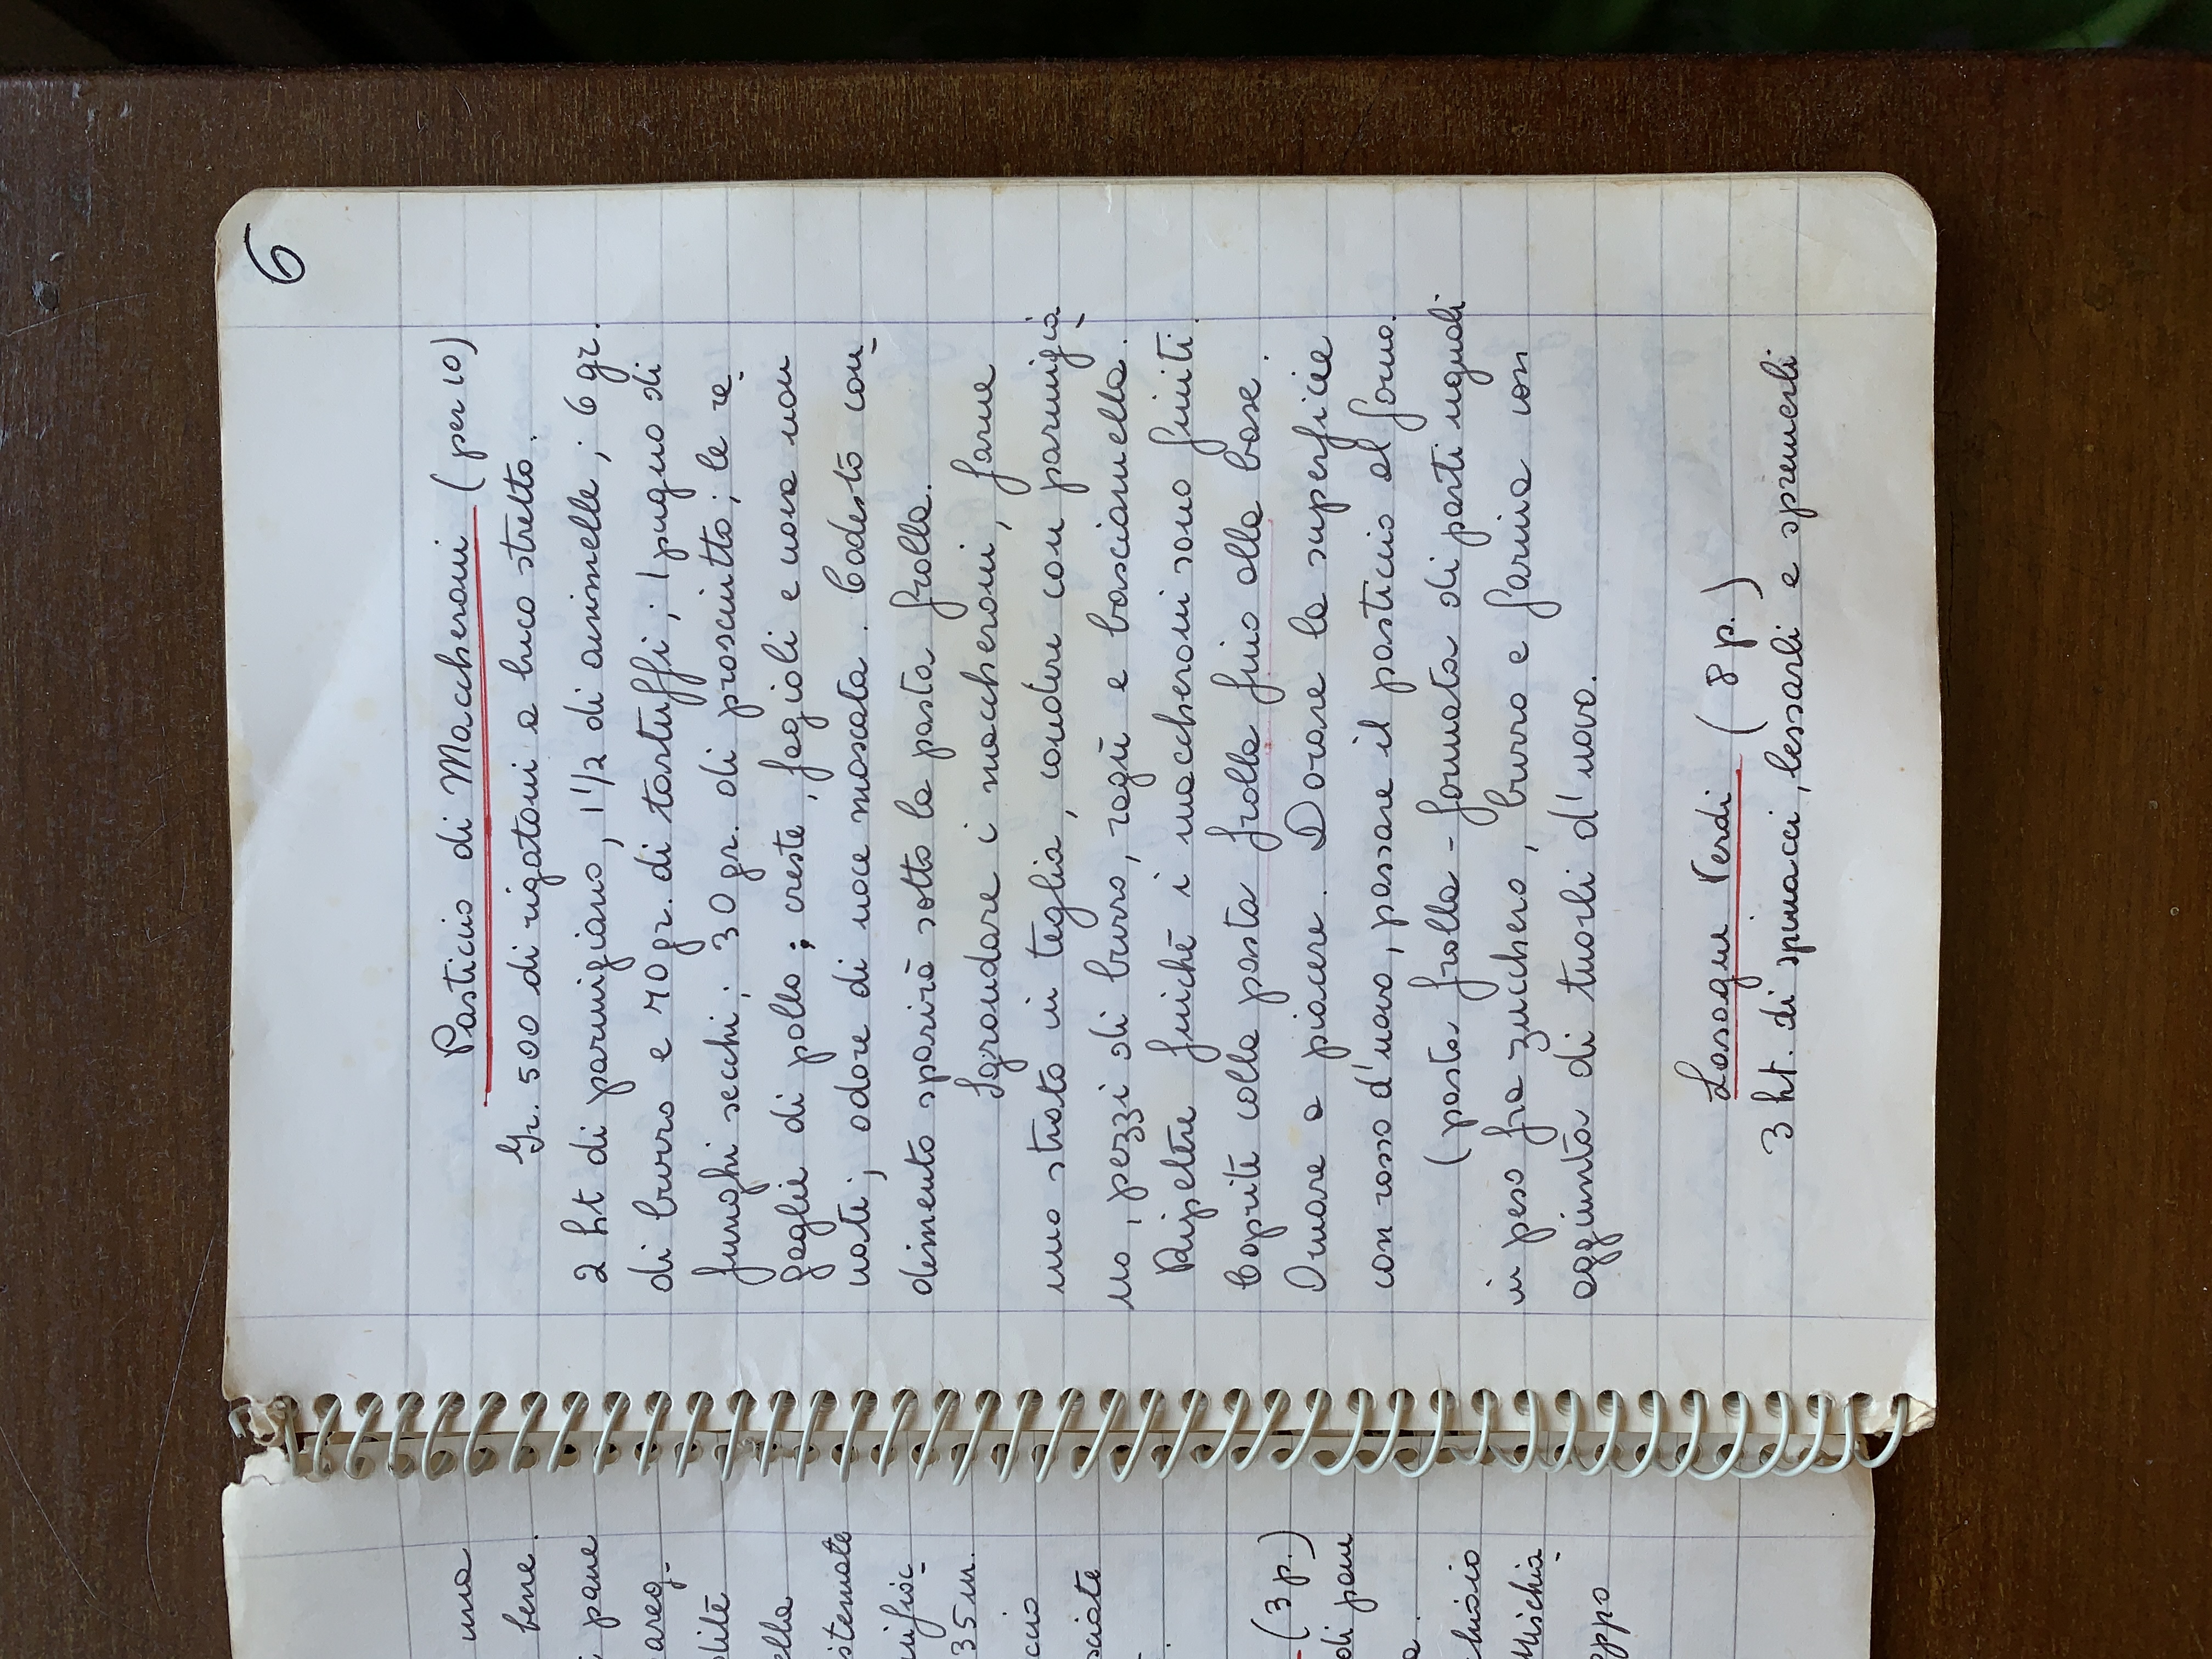 una
bene.
pane
areg-
dite
ella
stemate
35 m.
ccio
sciate
(3 p.)
di pane
a.
chiaio
Mischia-
oppo
6
Pasticcio di Maccheroni (per 10)
Gr. 500 di rigatoni a buco stretto.
2 ht di parmigiano, 1 1/2 di animelle; 6 gr.
di burro e 70 gr. di tartuffi; 1 pugno di
funghi secchi; 30 gr. di prosciutto; le re-
gaglie di pollo; creste, fagioli e uova non
nate; odore di noce moscata. Codesto con-
dimento sparirà sotto la pasta frolla.
Sgrondare i maccheroni, farne
uno strato in teglia, condire con parmigia-
no, pezzi di burro, ragù e basciamella.
Ripetere finchè i maccheroni sono finiti.
Coprite colla pasta frolla fino alla base.
Ornare a piacere. Dorare la superficie
con rosso d'uovo, passare il pasticcio al forno.
(pasta frolla - formata di parti uguali
in peso fra zucchero, burro e farina con
aggiunta di tuorli d'uovo.
Lasagne Verdi (8 p.)
3 ht. di spinacci, lessarli e spremerli